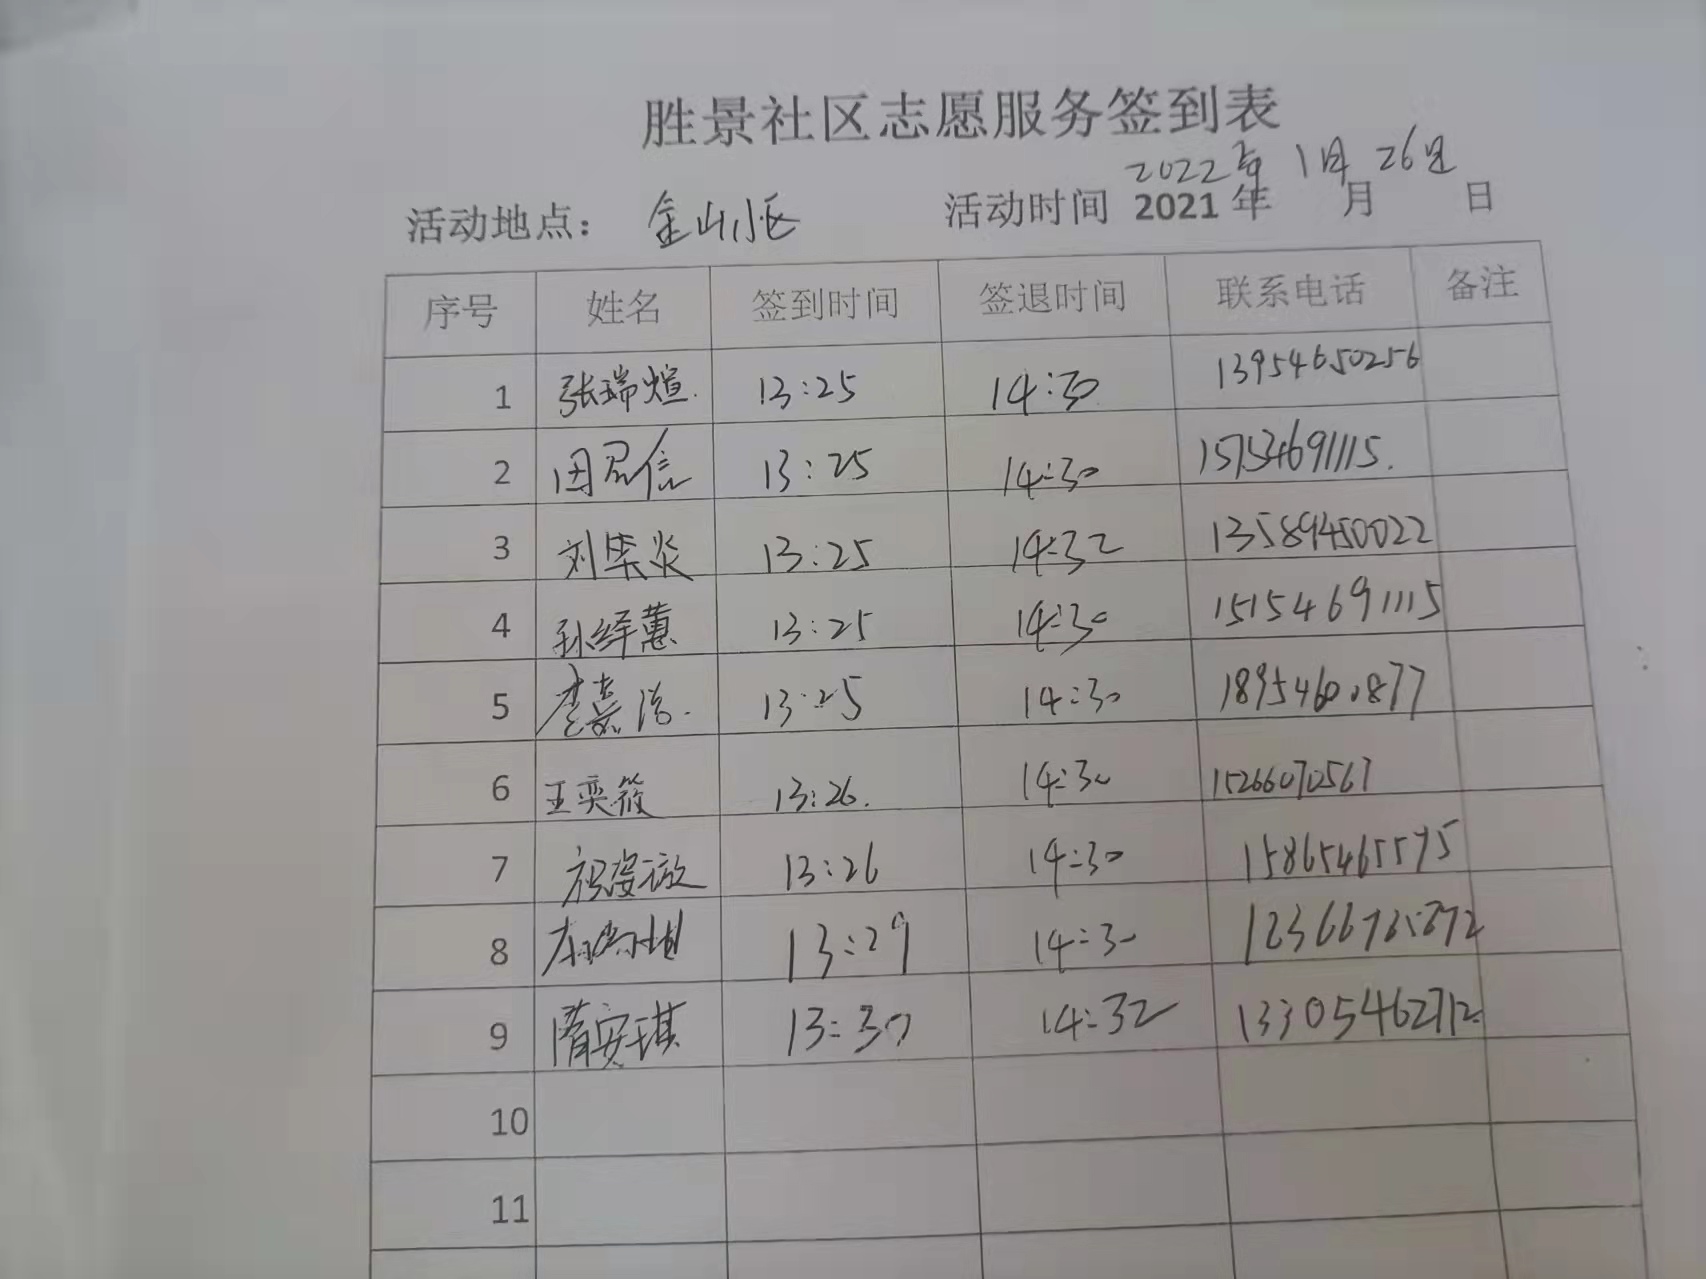 胜景社区志愿服务签到表
2022年 1月 26日
活动地点： 金山小区 活动时间 2021 年 月 日
序号 姓名 签到时间 签退时间 联系电话 备注
1 张瑞煊 13:25 14:30 13954650256
2 田君信 13:25 14:30 15154691115
3 刘栗炎 13:25 14:32 13589450022
4 孙绎蕙 13:25 14:30 15154691115
5 李嘉浩 13:25 14:30 18954600877
6 王奕筱 13:26 14:30 15266070567
7 13:26 14:30 15865465575
8 13:29 14:30
9 隋安琪 13:30 14:32 13305462712
10
11